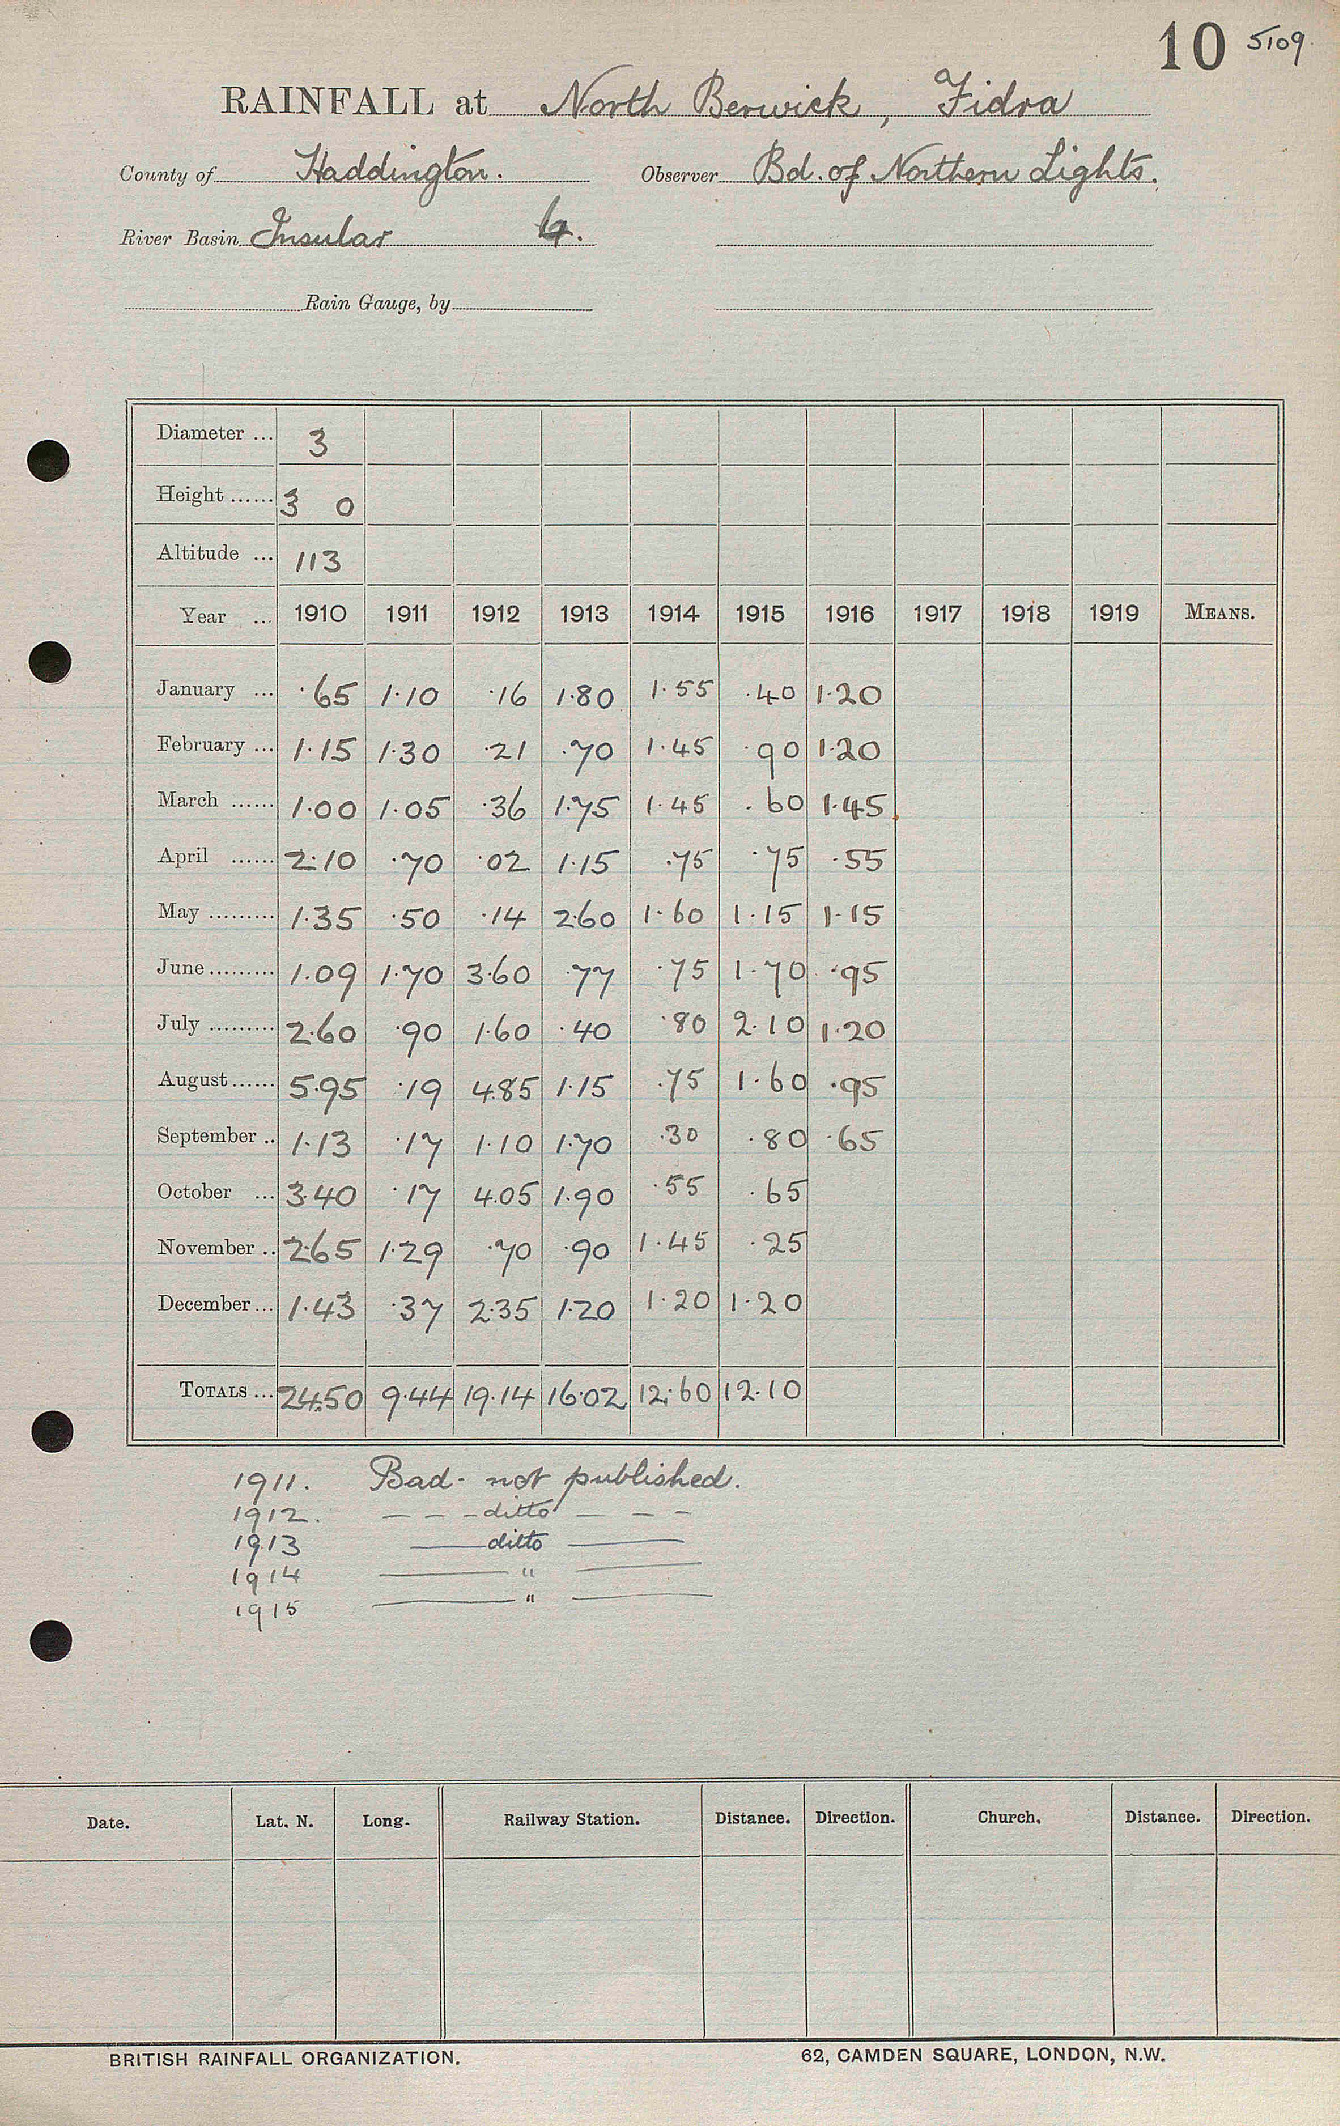 10 5109.
RAINFALL at North Berwick, Fidra
County of Haddington. Observer Bd. of Northern Lights.
River Basin Insular
Rain Gauge, by
Diameter ... 3
Height ...... 3 0
Altitude ... 113
Year ... 1910 1911 1912 1913 1914 1915 1916 1917 1918 1919 MEANS.
January ... ·65 1·10 ·16 1·80 1·55 ·40 1·20
February ... 1·15 1·30 ·21 ·70 1·45 ·90 1·20
March ...... 1·00 1·05 ·36 1·75 1·45 ·60 1·45
April ...... 2·10 ·70 ·02 1·15 ·75 ·75 ·55
May ......... 1·35 ·50 ·14 2·60 1·60 1·15 1·15
June ......... 1·09 1·70 3·60 ·77 ·75 1·70 ·95
July ......... 2·60 ·90 1·60 ·40 ·80 2·10 1·20
August ...... 5·95 ·19 4·85 1·15 ·75 1·60 ·95
September .. 1·13 ·17 1·10 1·70 ·30 ·80 ·65
October ... 3·40 ·17 4·05 1·90 ·55 ·65
November .. 2·65 1·29 ·70 ·90 1·45 ·25
December ... 1·43 ·37 2·35 1·20 1·20 1·20
TOTALS ... 24·50 9·44 19·14 16·02 12·60 12·10
1911. Bad - not published.
1912. — — — ditto — — —
1913 — ditto —
1914 — " —
1915 — " —
Date. Lat. N. Long. Railway Station. Distance. Direction. Church. Distance. Direction.
BRITISH RAINFALL ORGANIZATION. 62, CAMDEN SQUARE, LONDON, N.W.